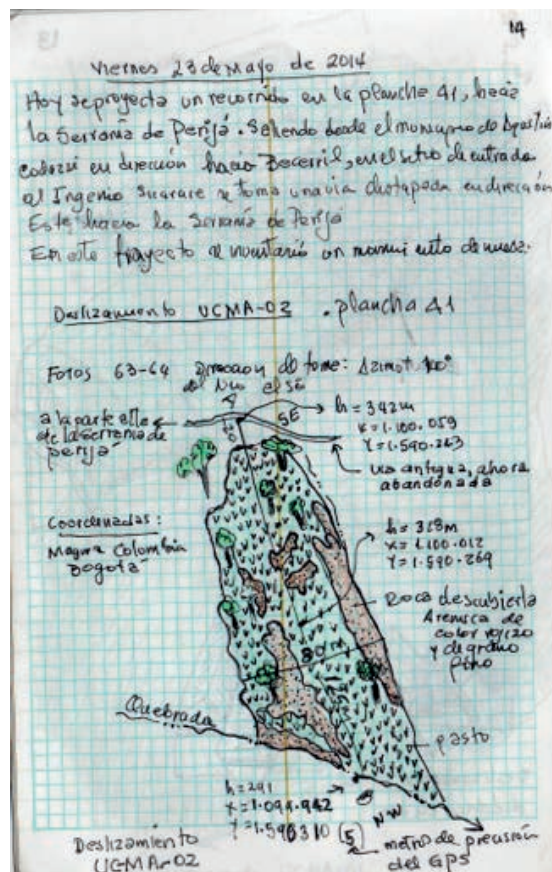 14
Viernes 23 de Mayo de 2014
Hoy se proyecta un recorrido en la plancha 41, hacia
la Serranía de Perijá. Saliendo desde el municipio de Agustín
codazzi en dirección hacia Becerril, en el sitio de entrada
al Ingenio Sicarare se toma una via destapada en dirección
Este hacia la Serranía de Perijá
En este trayecto se inventario un movimiento de masa.
Deslizamiento UCMA-02 . plancha 41
Fotos 63-64 Direccion de toma: Azimut 100°
del NW al SE
a la parte alta
de la serrania de
perijá
SE
h = 342m
X = 1.100.059
Y = 1.590.263
via antigua, ahora
abandonada
Coordenadas:
Magna Colombia
Bogotá
h = 318m
X = 1.100.012
Y = 1.590.269
Roca descubierta
Arenisca de
color rojizo
y de grano
fino
80m
Quebrada
pasto
h = 291
X = 1.099.942
Y = 1.590310 (5)
NW
metros de precisión
del GPS
Deslizamiento
UCMA-02